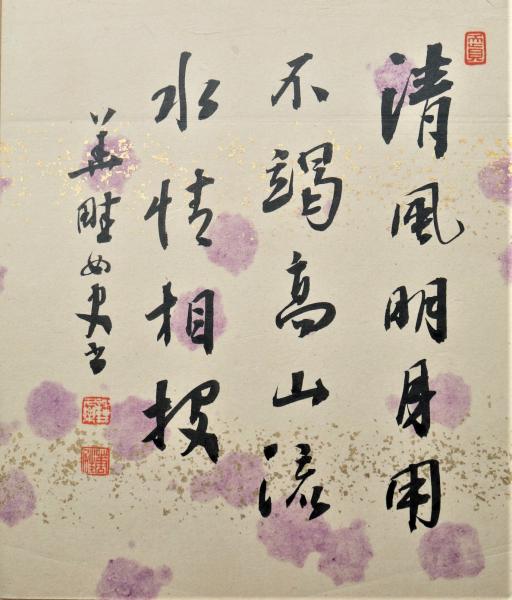 清風明月用
不竭高山流
水情相投
華畦女史書